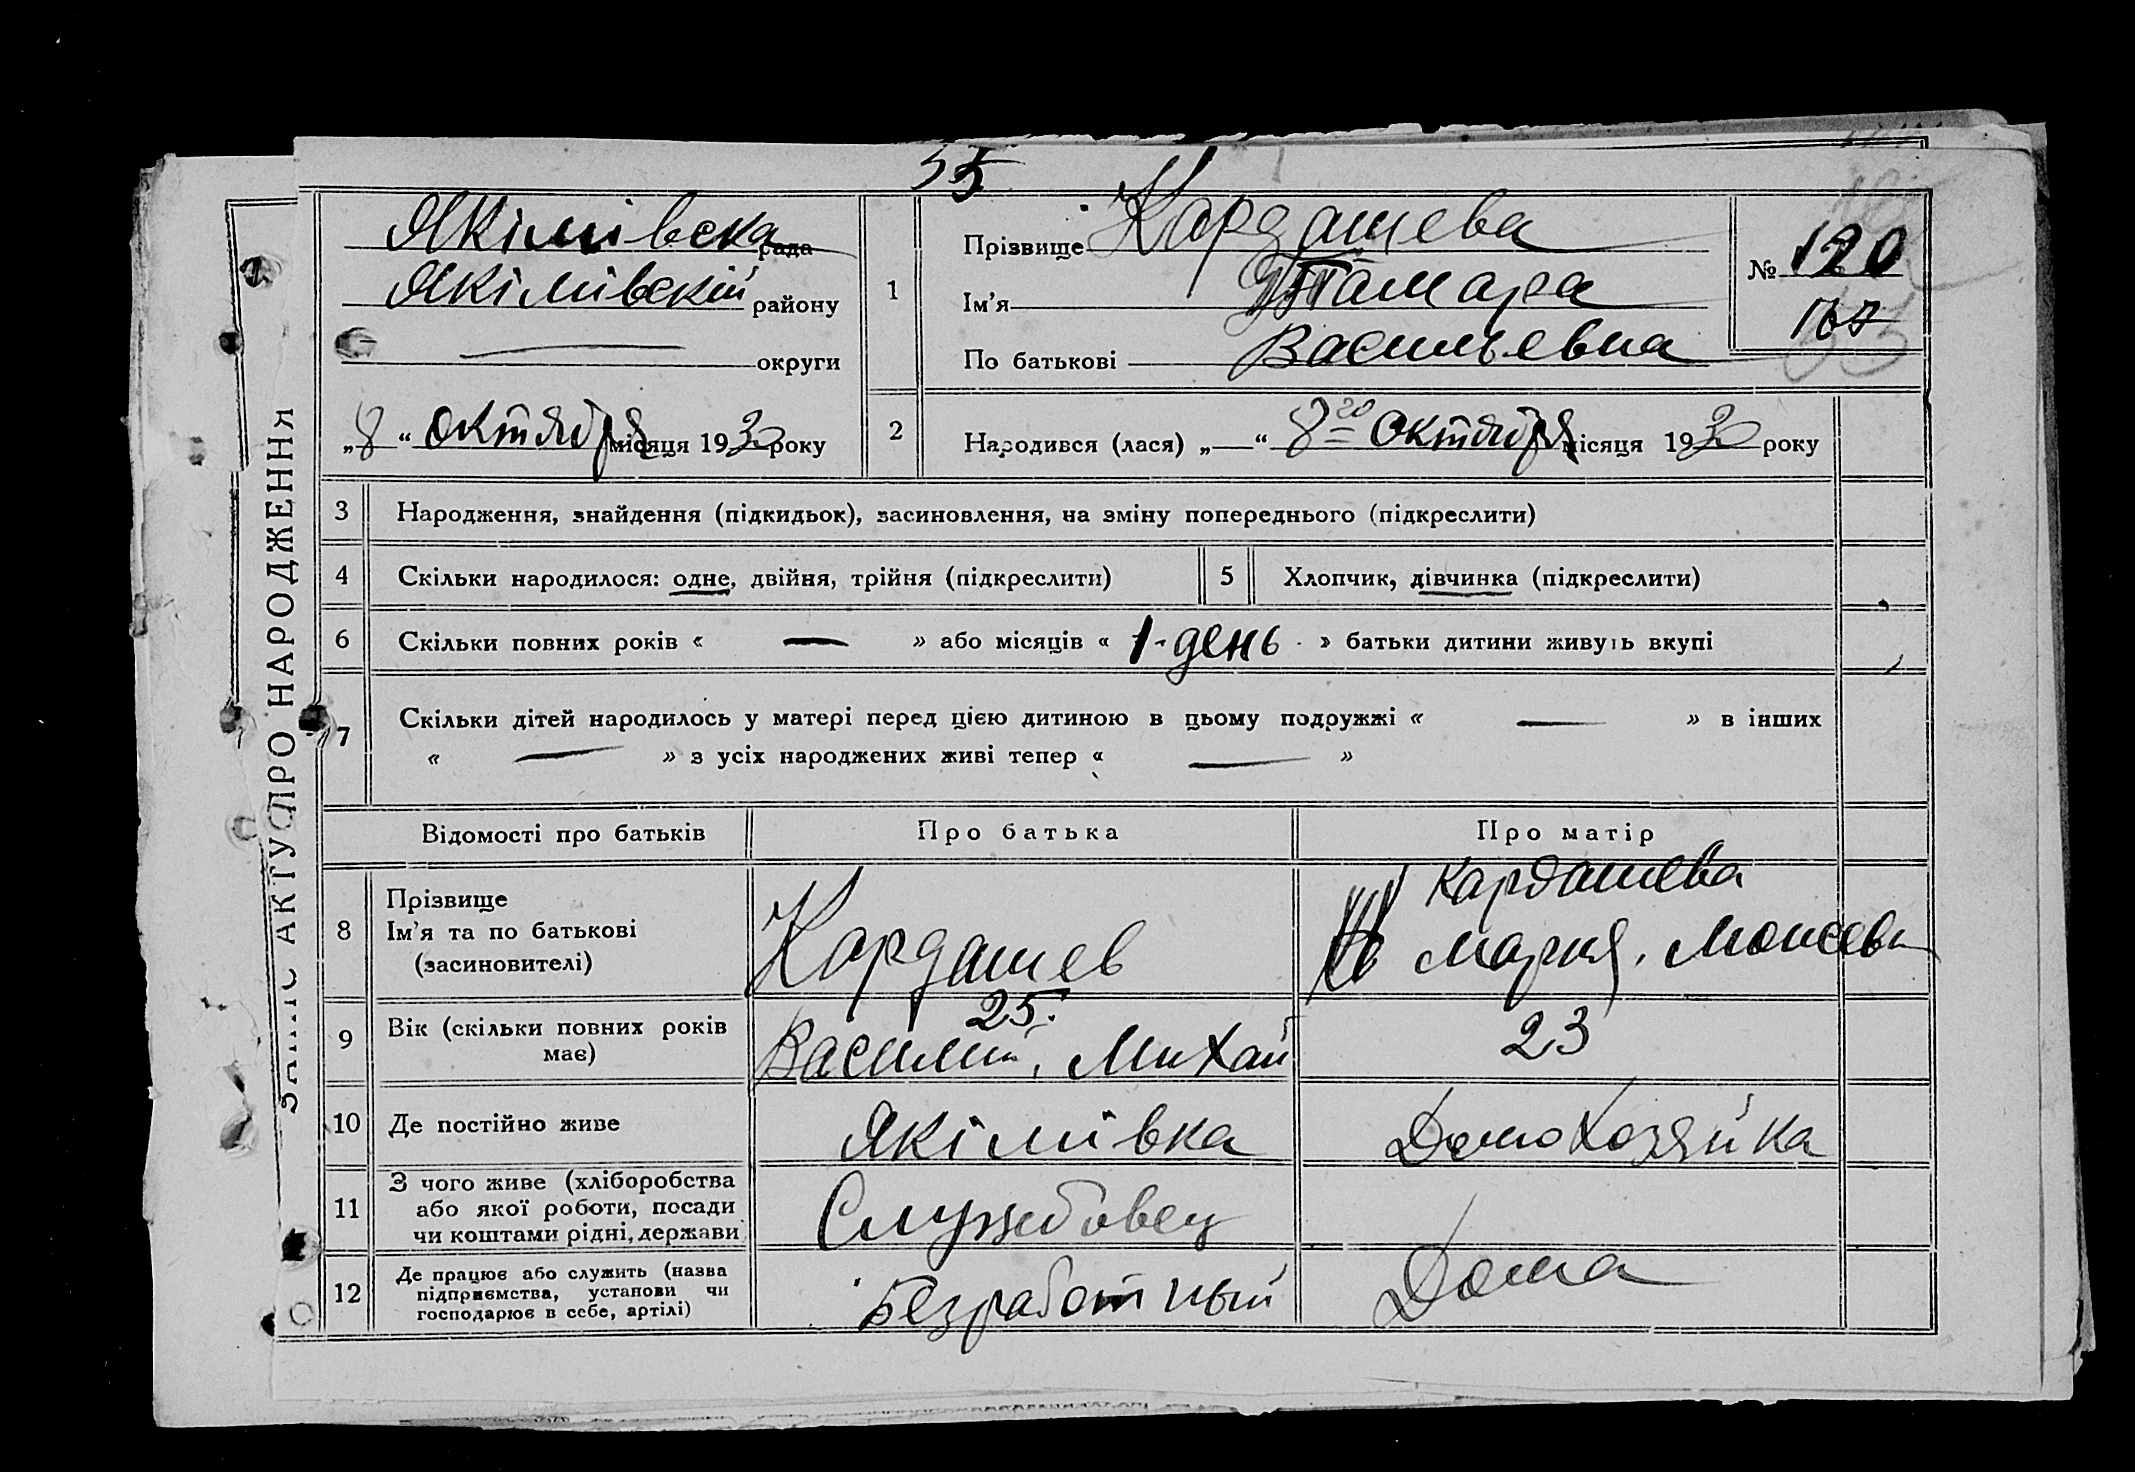 55
ЗАПИС АКТУ ПРО НАРОДЖЕННЯ
Якімівска рада
Якімівскій району
округи
„8“ октября місяця 1930 року
1
Прізвище Кардашева
Ім’я Тамара
По батькові Васильевна
№ 120
2
Народився (лася) „ “ 8го октября місяця 1930 року
3 Народження, знайдення (підкидьок), засиновлення, на зміну попереднього (підкреслити)
4 Скільки народилося: одне, двійня, трійня (підкреслити) 5 Хлопчик, дівчинка (підкреслити)
6 Скільки повних років « — » або місяців « 1-день » батьки дитини живуть вкупі
7 Скільки дітей народилось у матері перед цією дитиною в цьому подружжі « — » в інших
« — » з усіх народжених живі тепер « — »
Відомості про батьків Про батька Про матір
8 Прізвище
Ім’я та по батькові
(засиновителі)
Кардашев
Василий, Михай
Кардашева
Мария, Моисеевн
9 Вік (скільки повних років
має)
25. 23
10 Де постійно живе Якімівка Домохозяйка
11 З чого живе (хліборобства
або якої роботи, посади
чи коштами рідні, держави
Службовец
12 Де працює або служить (назва
підприємства, установи чи
господарює в себе, артілі)
Безработный Дома